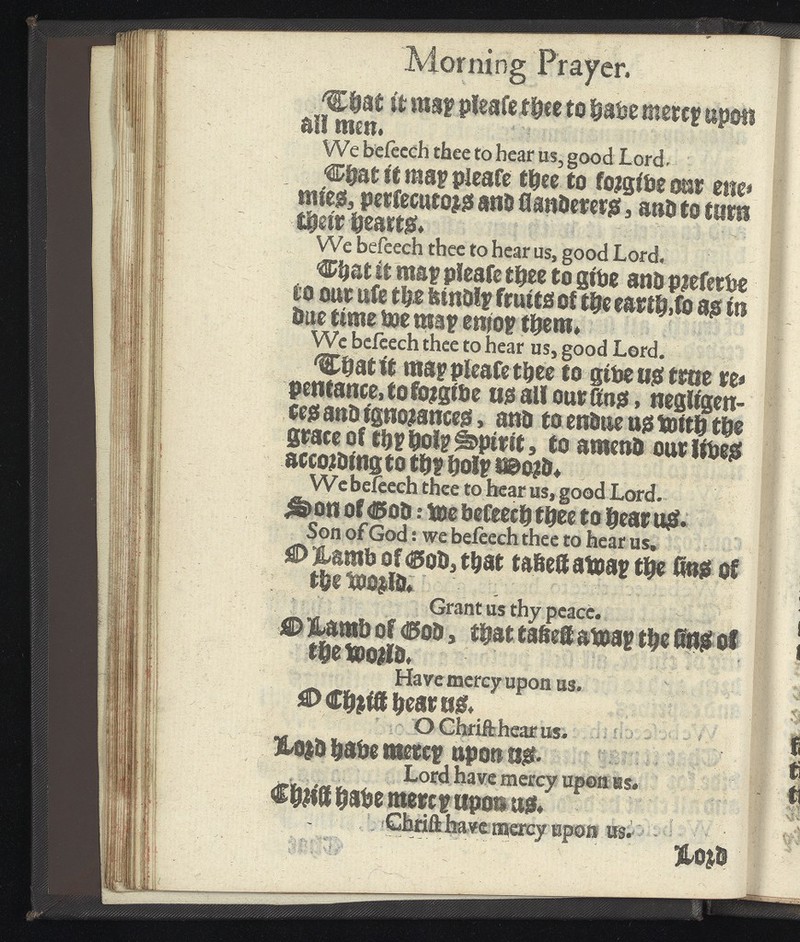 Morning Prayer.
That it may pleaſe thee to have mercy upon
all men.
We beſeech thee to hear us, good Lord.
That it may pleaſe thee to forgive our ene-
mies, perſecutors and ſlanderers, and to turn
their hearts.
We beſeech thee to hear us, good Lord.
That it may pleaſe thee to give and preſerve
to our uſe the kindly fruits of the earth, ſo as in
due time we may enjoy them.
We beſeech thee to hear us, good Lord.
That it may pleaſe thee to give us true re-
pentance, to forgive us all our ſins, negligen-
ces and ignorances, and to endue us with the
grace of thy holy Spirit, to amend our lives
according to thy holy Word.
We beſeech thee to hear us, good Lord.
Son of God: we beſeech thee to hear us.
Son of God: we beſeech thee to hear us.
O Lamb of God, that takeſt away the ſins of
the world.
Grant us thy peace.
O Lamb of God, that takeſt away the ſins of
the world.
Have mercy upon us.
O Chriſt hear us.
O Chriſt hear us.
Lord have mercy upon us.
Lord have mercy upon us.
Chriſt have mercy upon us.
Chriſt have mercy upon us.
Lord